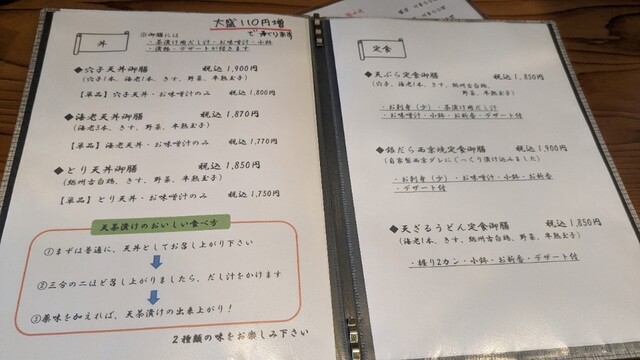 大盛110円増
で承ります
丼
※御膳には
・茶漬け用だし汁・お味噌汁・小鉢
・漬物・デザートが付きます
◆穴子天丼御膳 税込 1,900円
(穴子1本、海老1本、きす、野菜、半熟玉子)
【単品】穴子天丼・お味噌汁のみ 税込 1,800円
◆海老天丼御膳 税込 1,870円
(海老3本、きす、野菜、半熟玉子)
【単品】海老天丼・お味噌汁のみ 税込 1,770円
◆とり天丼御膳 税込 1,850円
(総州古白鶏、きす、野菜、半熟玉子)
【単品】とり天丼・お味噌汁のみ 税込 1,750円
天茶漬けのおいしい食べ方
①まずは普通に、天丼としてお召し上がり下さい
②三分の二ほど召し上がりましたら、だし汁をかけます
③薬味を加えれば、天茶漬けの出来上がり!
2種類の味をお楽しみ下さい
定食
◆天ぷら定食御膳 税込 1,850円
(穴子、海老1本、きす、総州古白鶏、野菜、半熟玉子)
・お刺身(少)・茶漬け用だし汁
・お味噌汁・小鉢・お新香・デザート付
◆銀だら西京焼定食御膳 税込 1,900円
(自家製西京ダレにじっくり漬け込みました)
・お刺身(少)・お味噌汁・小鉢・お新香
・デザート付
◆天ざるうどん定食御膳 税込 1,850円
(海老1本、きす、総州古白鶏、野菜、半熟玉子)
・握り2カン・小鉢・お新香・デザート付